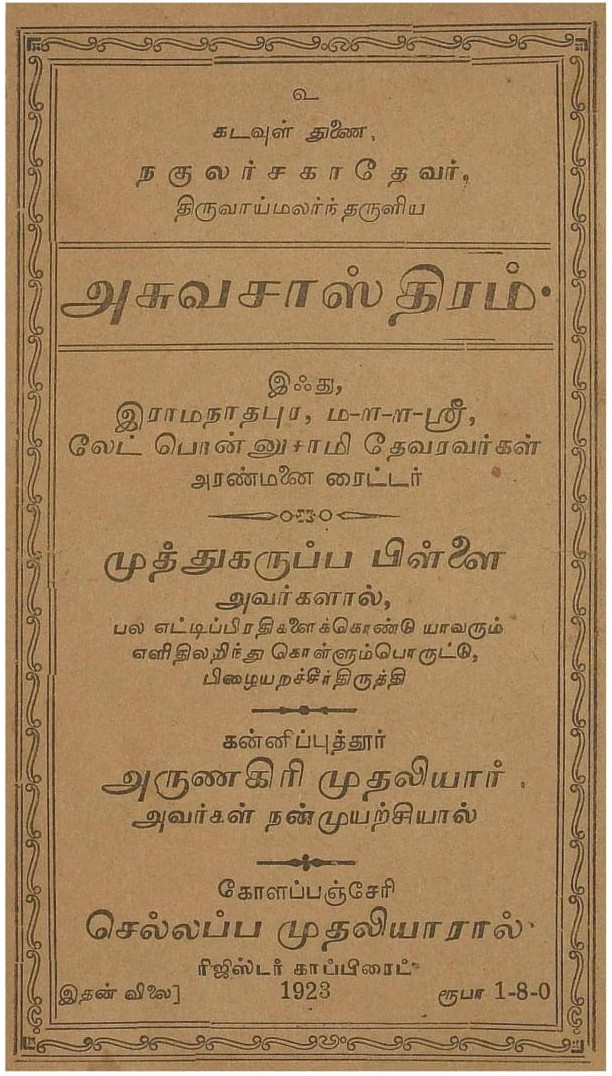 உ
கடவுள் துணை,
நகுலர்சகாதேவர்,
திருவாய்மலர்ந்தருளிய
அசுவசாஸ்திரம்.
இஃது,
இராமநாதபுர, ம-ள-ள-ஸ்ரீ,
லேட் பொன்னுசாமி தேவரவர்கள்
அரண்மனை ரைட்டர்
முத்துகருப்ப பிள்ளை
அவர்களால்,
பல எட்டிப்பிரதிகளைக்கொண்டு யாவரும்
எளிதிலறிந்து கொள்ளும்பொருட்டு,
பிழையறச்சீர்திருத்தி
கன்னிப்புத்தூர்
அருணகிரி முதலியார்.
அவர்கள் நன்முயற்சியால்
கோளப்பஞ்சேரி
செல்லப்ப முதலியாரால்
ரிஜிஸ்டர் காப்பிரைட்
இதன் விலை] 1923 ரூபா 1-8-0